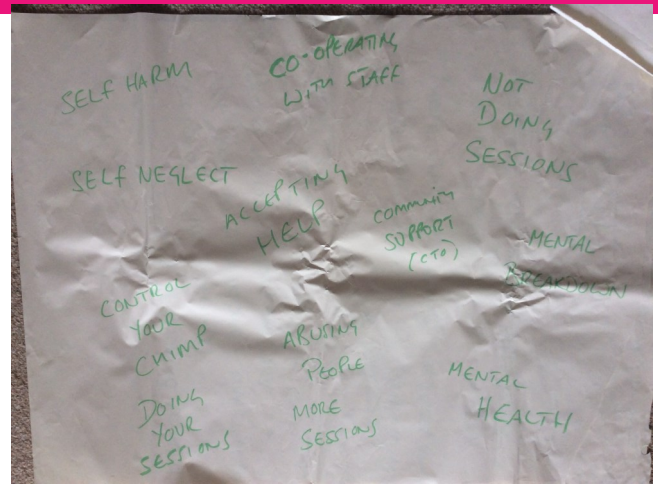 SELF HARM
CO-OPERATING
WITH STAFF
NOT
DOING
SESSIONS
SELF NEGLECT
ACCEPTING
HELP
COMMUNITY
SUPPORT
(CTO)
MENTAL
BREAKDOWN
CONTROL
YOUR
CHIMP
ABUSING
PEOPLE
MENTAL
HEALTH
DOING
YOUR
SESSIONS
MORE
SESSIONS